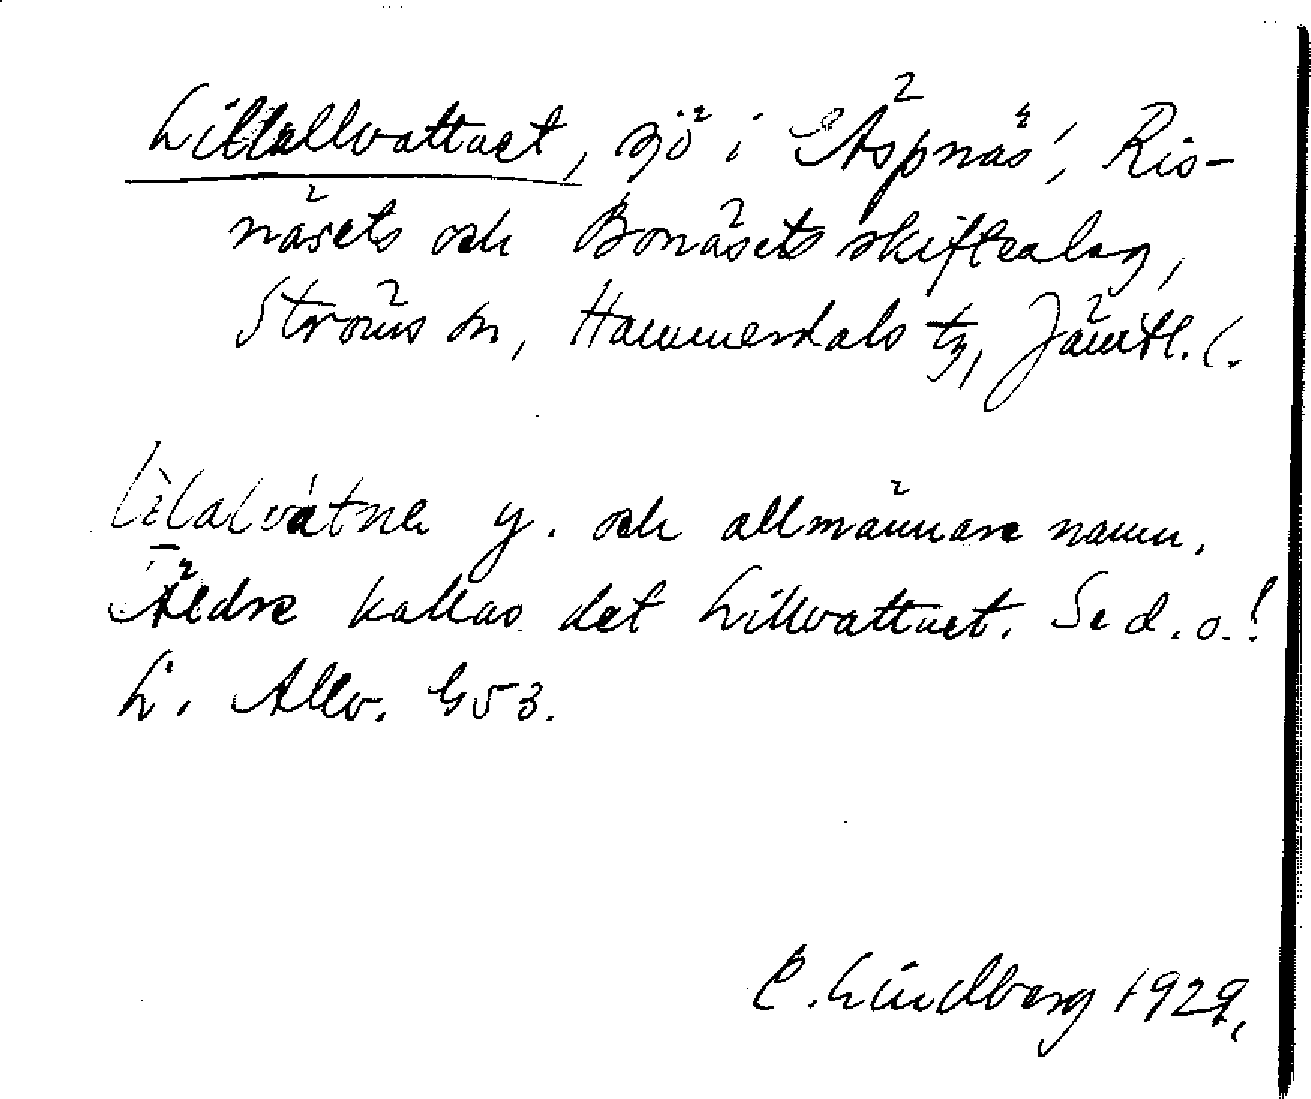 Lillallvattnet, sjö i Aspnäs', Ris-
näsets och Bonäsets skifteslag,
Ströms sn, Hammerdals tg, Jämtl. l.
lìlalvátne y. och allmännare namn.
Äldre kallas det Lillvattnet. Se d. o.!
L. Allv. G53.
C. Lindberg 1929.